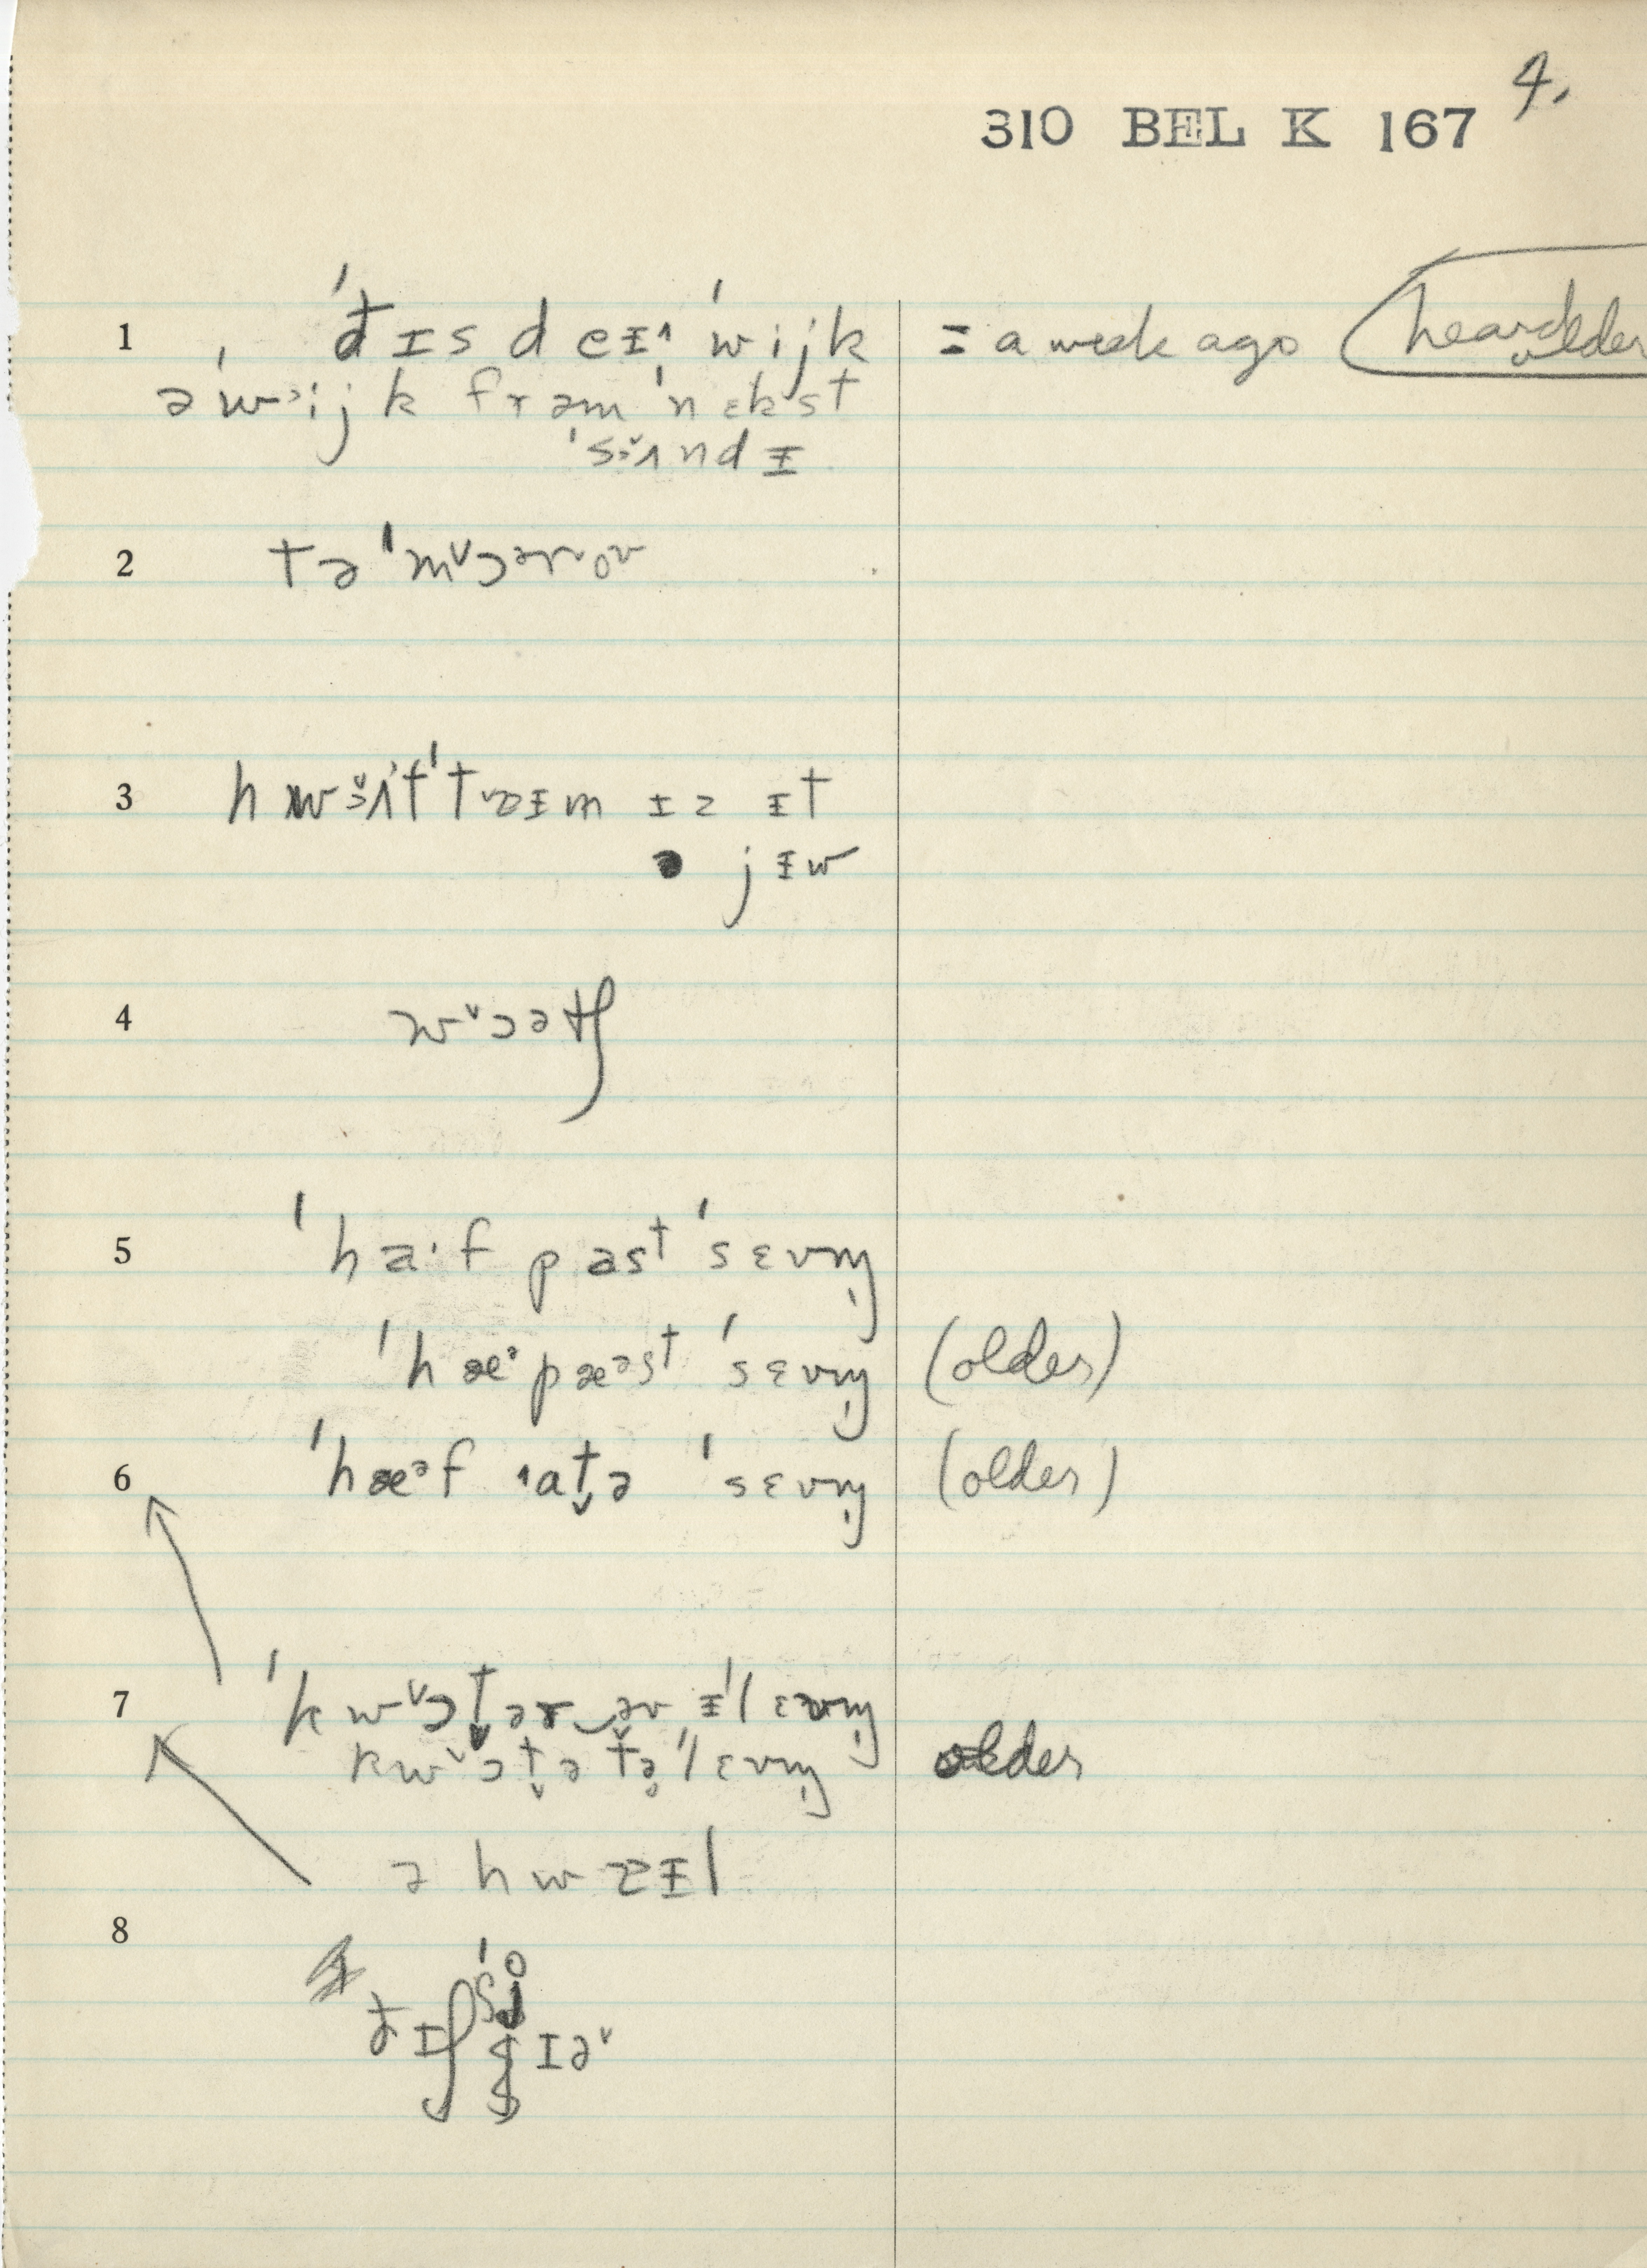 4.
310 BEL K 167
1 ˈđɪs d eɪ ˈwijk = a week ago heard older
ə ˈwᵊijk frəm ˈnɛkst
ˈsɜ̌ʌndɪ
2 tə ˈmᵛɔərov
3 hwɜ̌ʌt ˈtɐɪm ɪz ɪt
ə jɪw
4 wᵛɔətʃ
5 ˈhaˑf past ˈsɛvm̩
ˈhæᵊ pæᵊst ˈsɛvm̩ (older)
6 ˈhæᵊf ɪat̬ə ˈsɛvm̩ (older)
7 ˈkwᵛɔt̬ər‿əv ɪˈlɛvm̩
kwᵛɔt̬ə tə̥ˈlɛvm̩ older
ə hwɐɪl
8